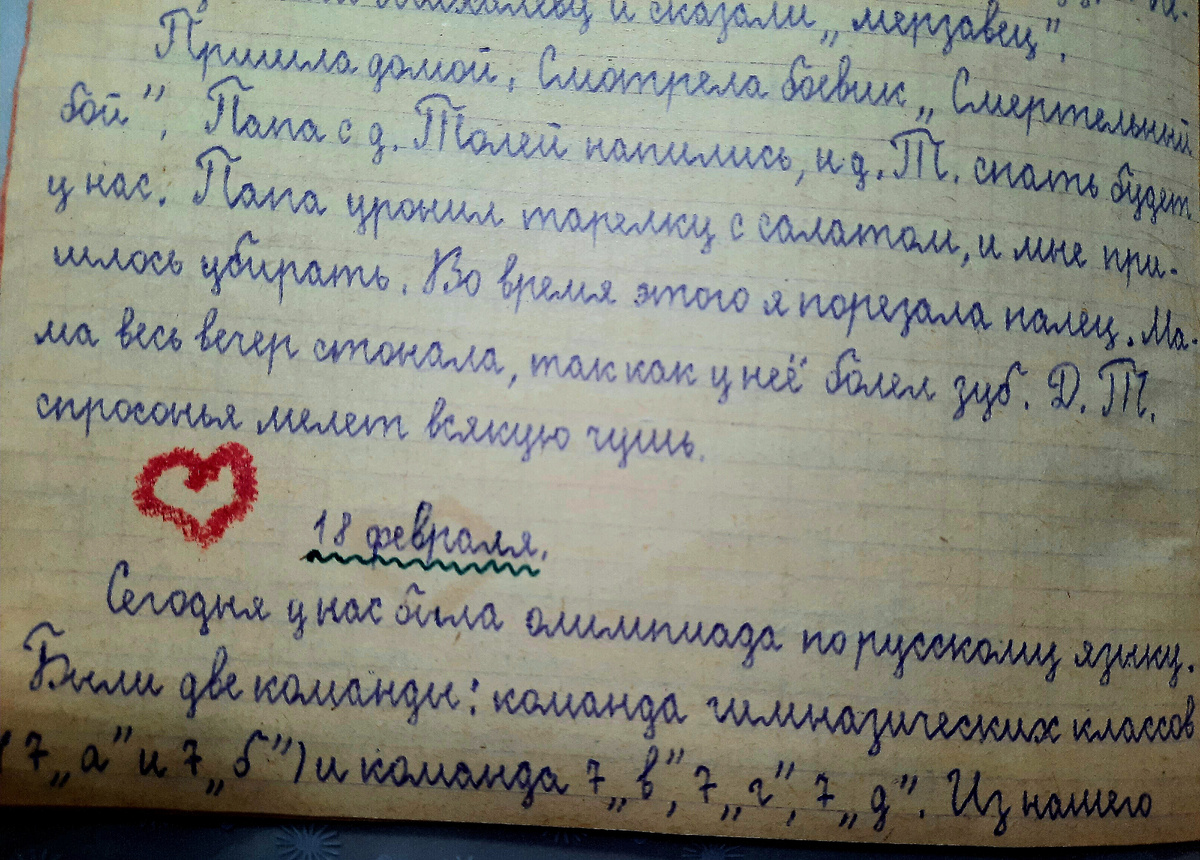 и сказали „мерзавец".
Пришла домой. Смотрела боевик „Смертельный
бой". Папа с д. Толей напились, и д. Т. спать будет
у нас. Папа уронил тарелку с салатом, и мне при-
шлось убирать. Во время этого я порезала палец. Ма-
ма весь вечер стонала, так как у неё болел зуб. Д. Т.
спросонья мелет всякую чушь.
18 февраля.
Сегодня у нас была олимпиада по русскому языку.
Были две команды: команда гимназических классов
(7 „а" и 7 „б") и команда 7 „в", 7 „г", 7 „д". Из нашего